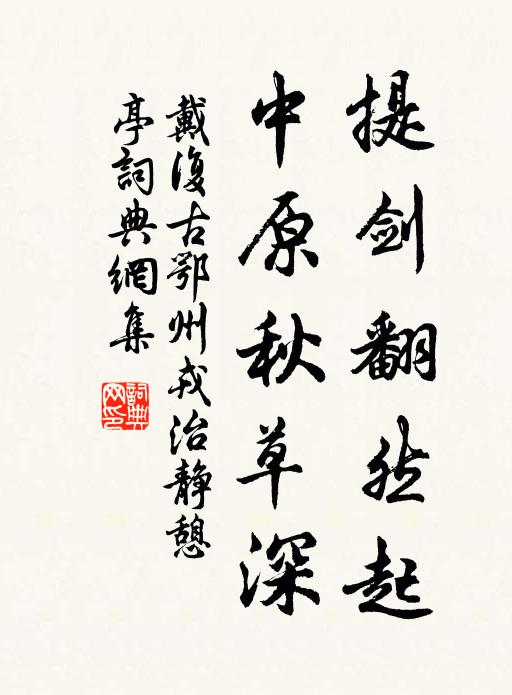 提剑翻然起
中原秋草深
戴復古鄂州戎治静憩
亭詞典網集
詞典
网印